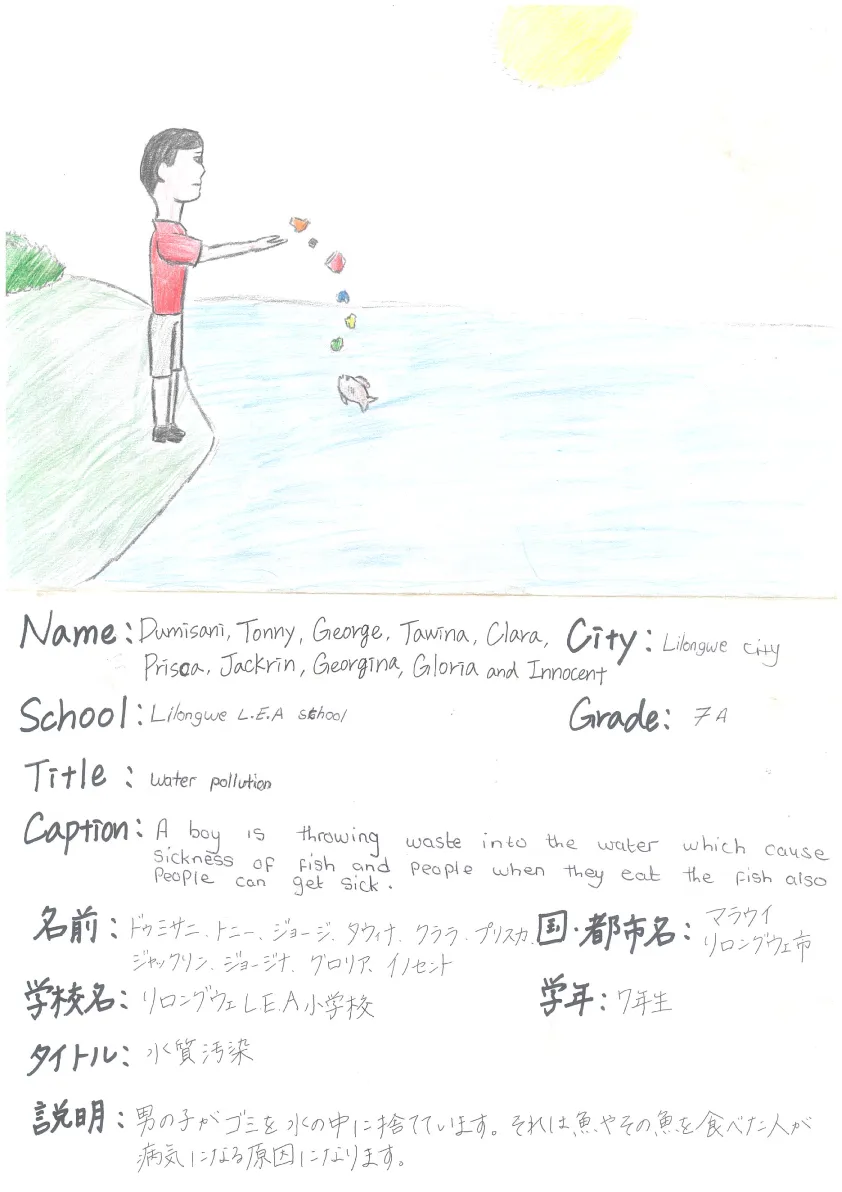 Name: Dumisani, Tonny, George, Tawina, Clara, City: Lilongwe city
Prisca, Jackrin, Georgina, Gloria and Innocent
School: Lilongwe L.E.A school Grade: 7A
Title: water pollution
Caption: A boy is throwing waste into the water which cause
sickness of fish and people when they eat the fish also
people can get sick.
名前: ドゥミサニ、トニー、ジョージ、タウィナ、クララ、プリスカ、国・都市名: マラウイ
ジャックリン、ジョージナ、グロリア、イノセント リロングウェ市
学校名: リロングウェL.E.A小学校 学年: 7年生
タイトル: 水質汚染
説明: 男の子がゴミを水の中に捨てています。それは魚やその魚を食べた人が
病気になる原因になります。